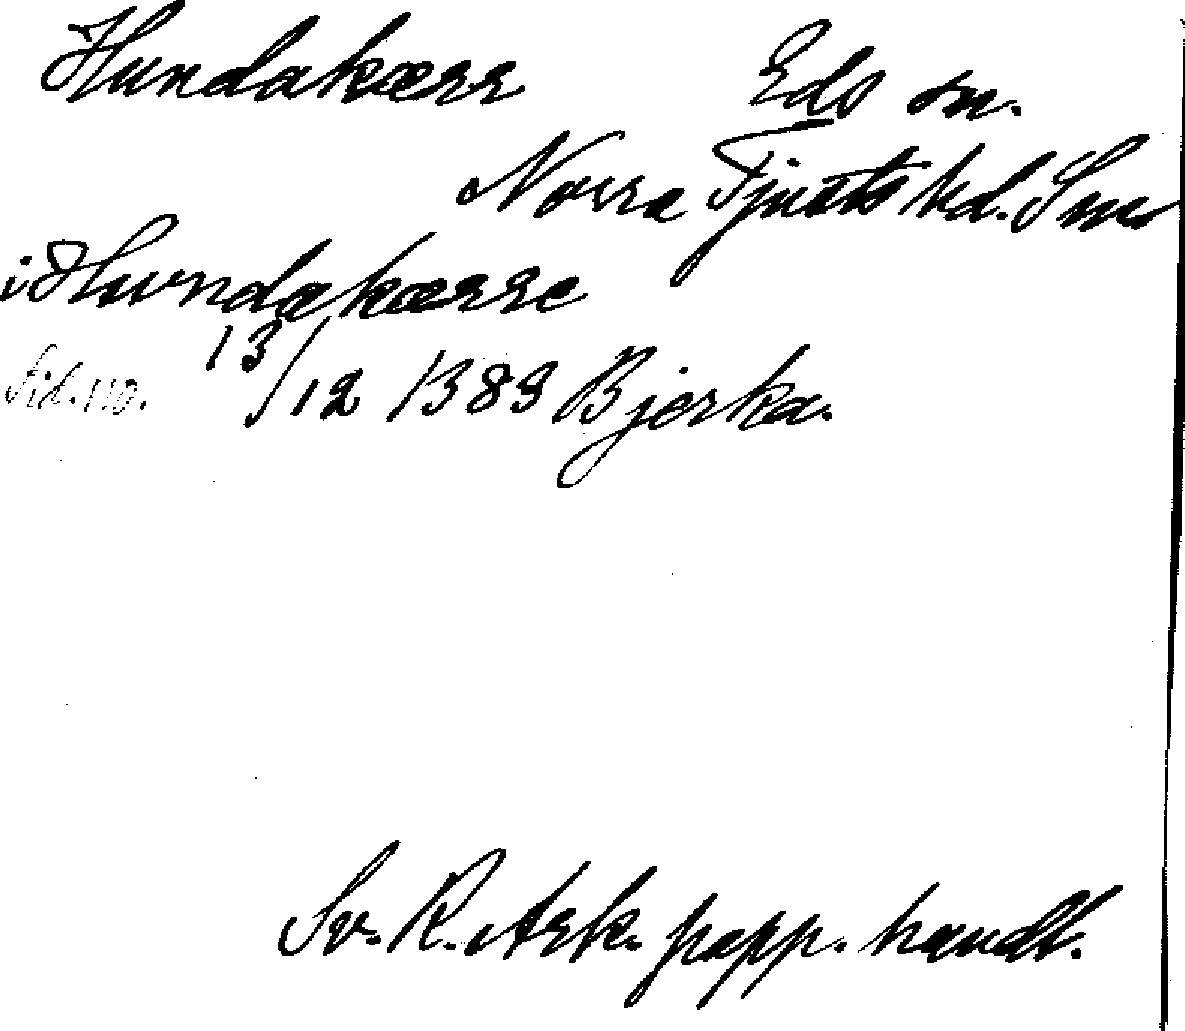 Hundakærr Eds sn.
Norra Tjusts hd. Sm
i Hundakærre
Sid. 110. 13/12 1383 Bjerka.
Sv. R. Ark. papp. handl.